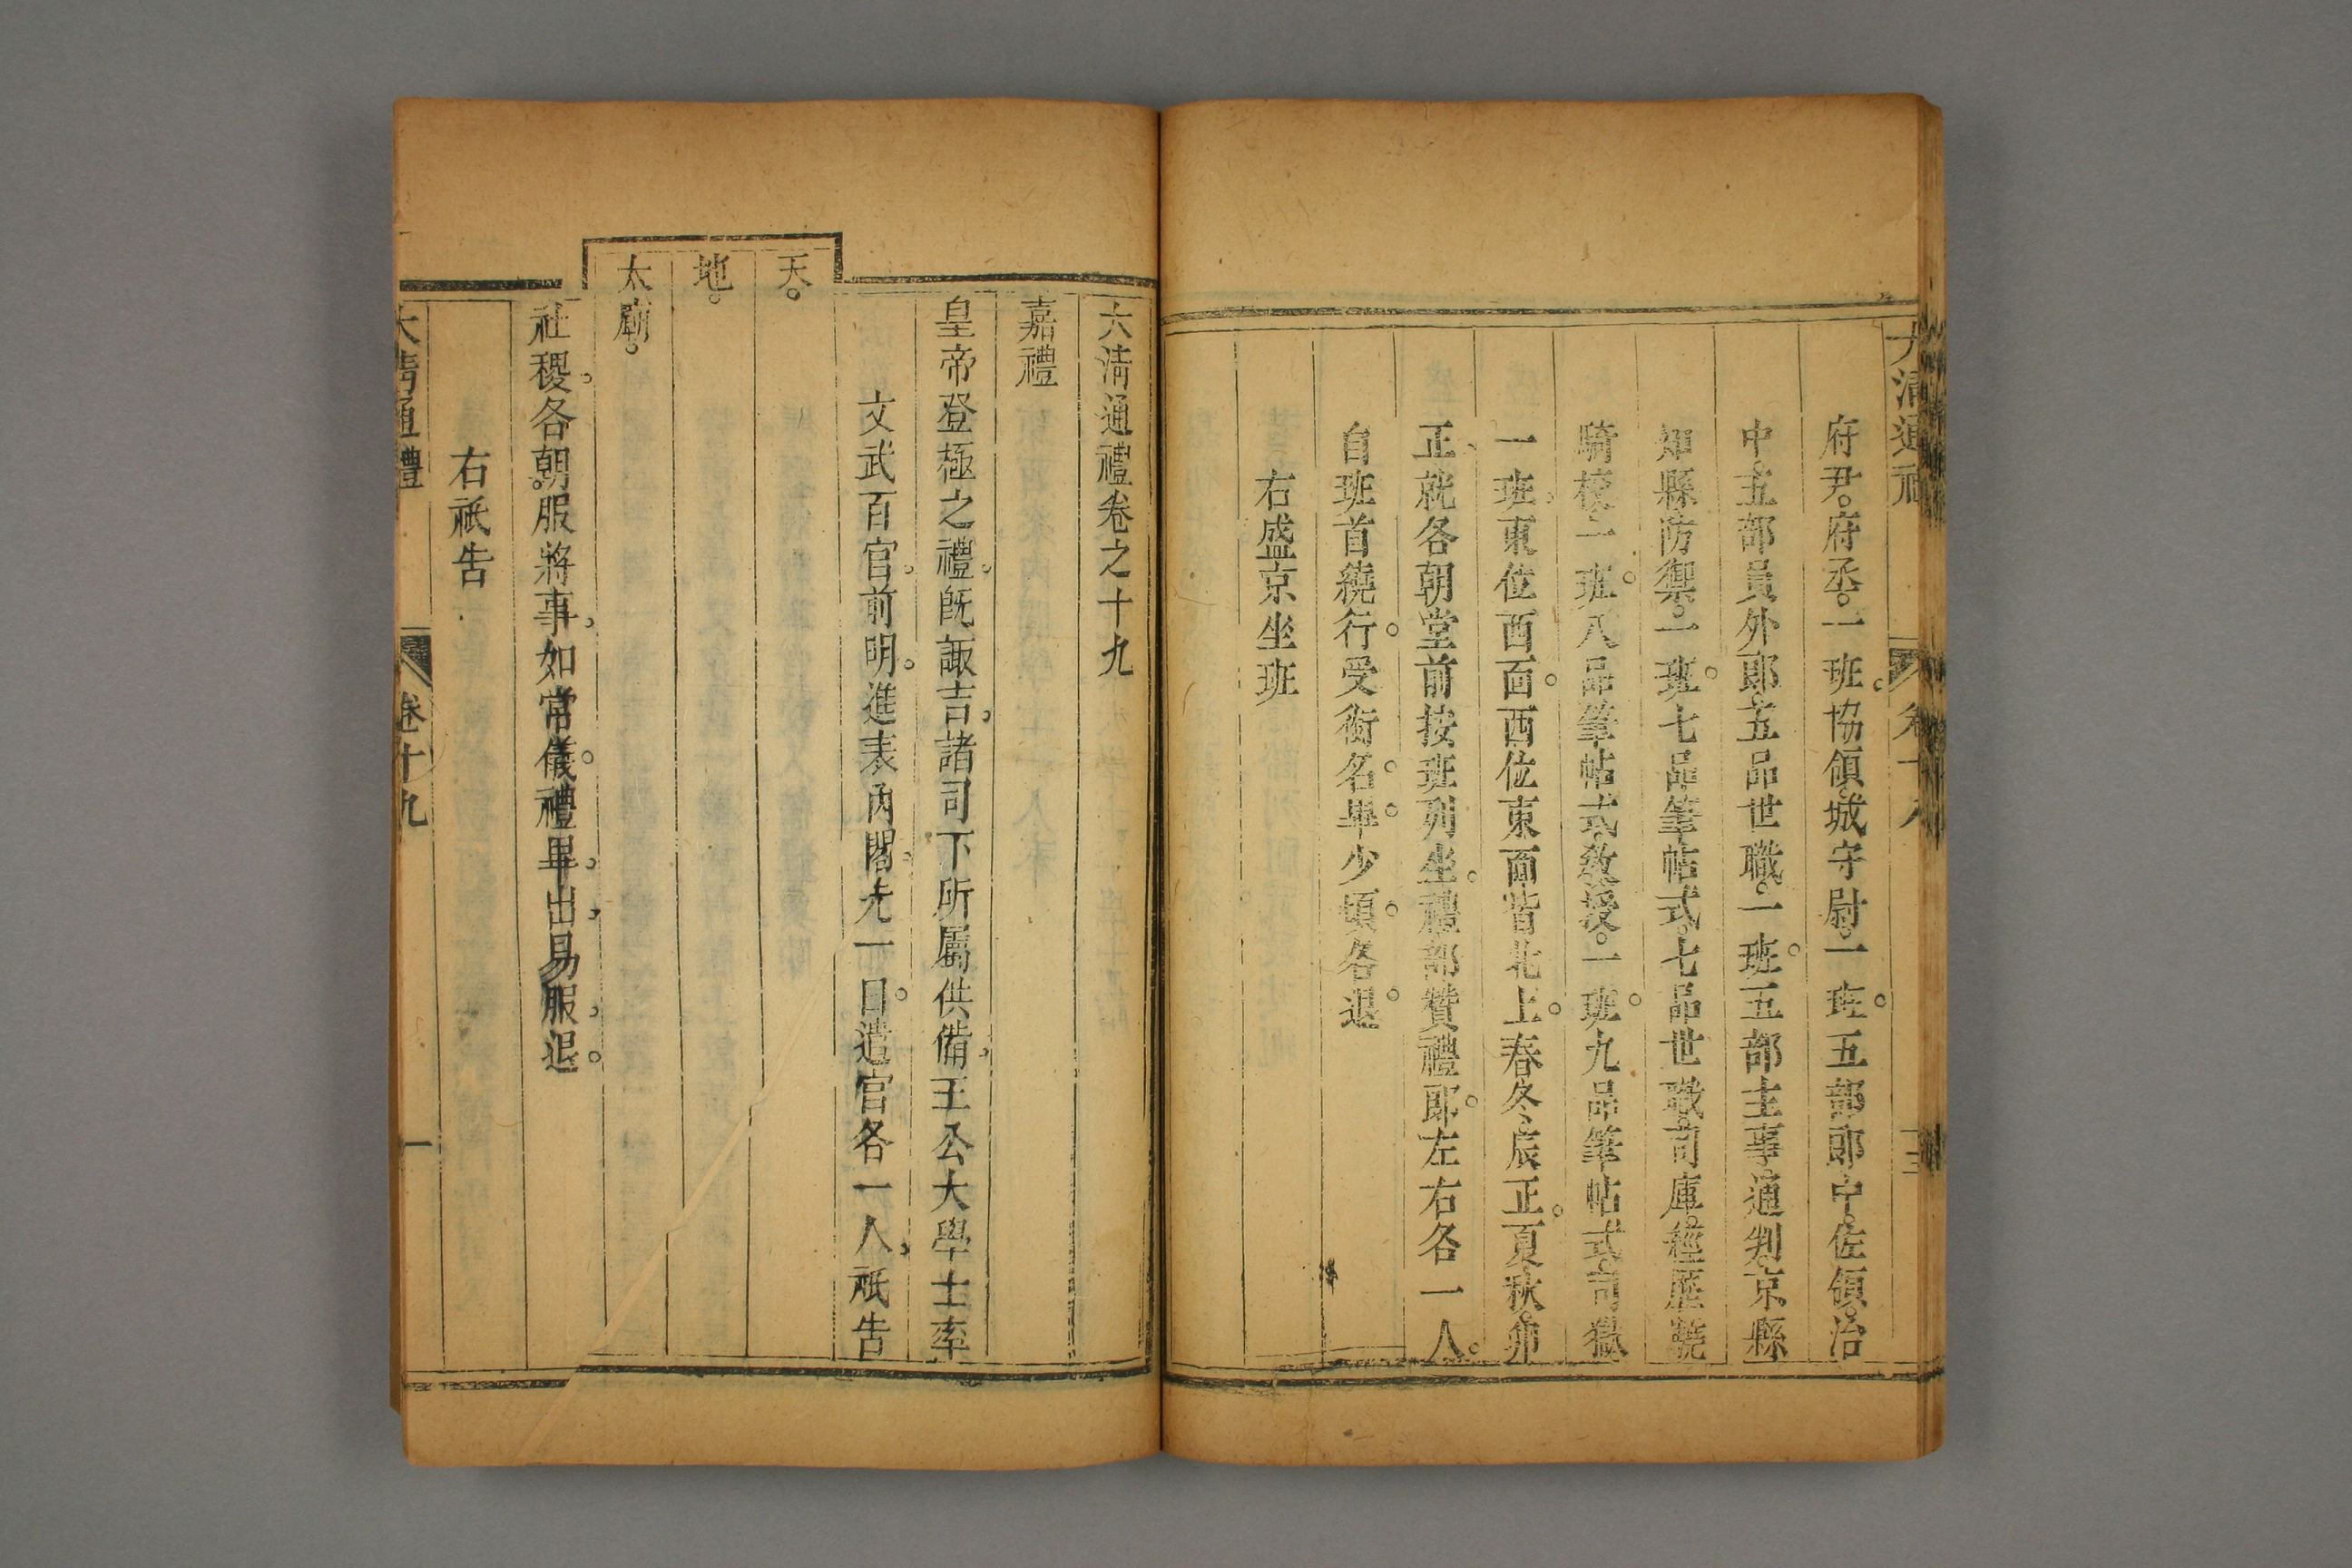 大清通禮 卷十八
府尹。府丞。一班。協領。城守尉。一班。五部郎中。佐領。治
中。五部員外郎。五品世職。一班。五部主事。通判。京縣
知縣。防禦。一班。七品筆帖式。七品世職。司庫。經歷。驍
騎校。一班。八品筆帖式。教授。一班。九品筆帖式。司獄
一班。東位西面。西位東面。皆北上。春冬、辰正。夏秋。卯
正、就各朝堂前按班列坐。禮部贊禮郎。左右各一人。
自班首繞行。受銜名。畢。少頃。各退。
右盛京坐班
大清通禮卷之十九
嘉禮
皇帝登極之禮。既諏吉。諸司下所屬供備。王公大學士率
文武百官。前明。進表內閣。先一日。遣官各一人。祇告
天。
地。
太廟。
社稷。各朝服將事。如常儀。禮畢。出。易服。退。
右祇告
大清通禮 卷十九 一